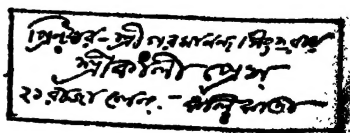 প্রিন্টার - শ্রীপরমানন্দ সিংহ রায়
শ্রীকালী প্রেস
২১ রাজা লেন, - কলিকাতা